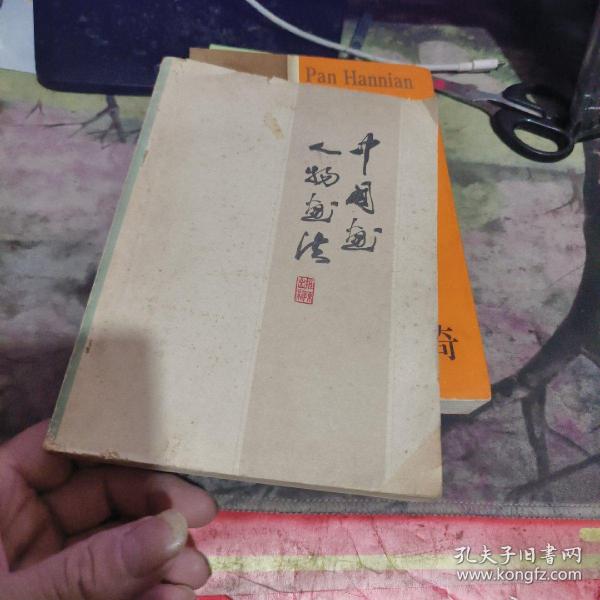 Pan Hannian
中国画
人物画法
奇
孔夫子旧书网
www.kongfz.com